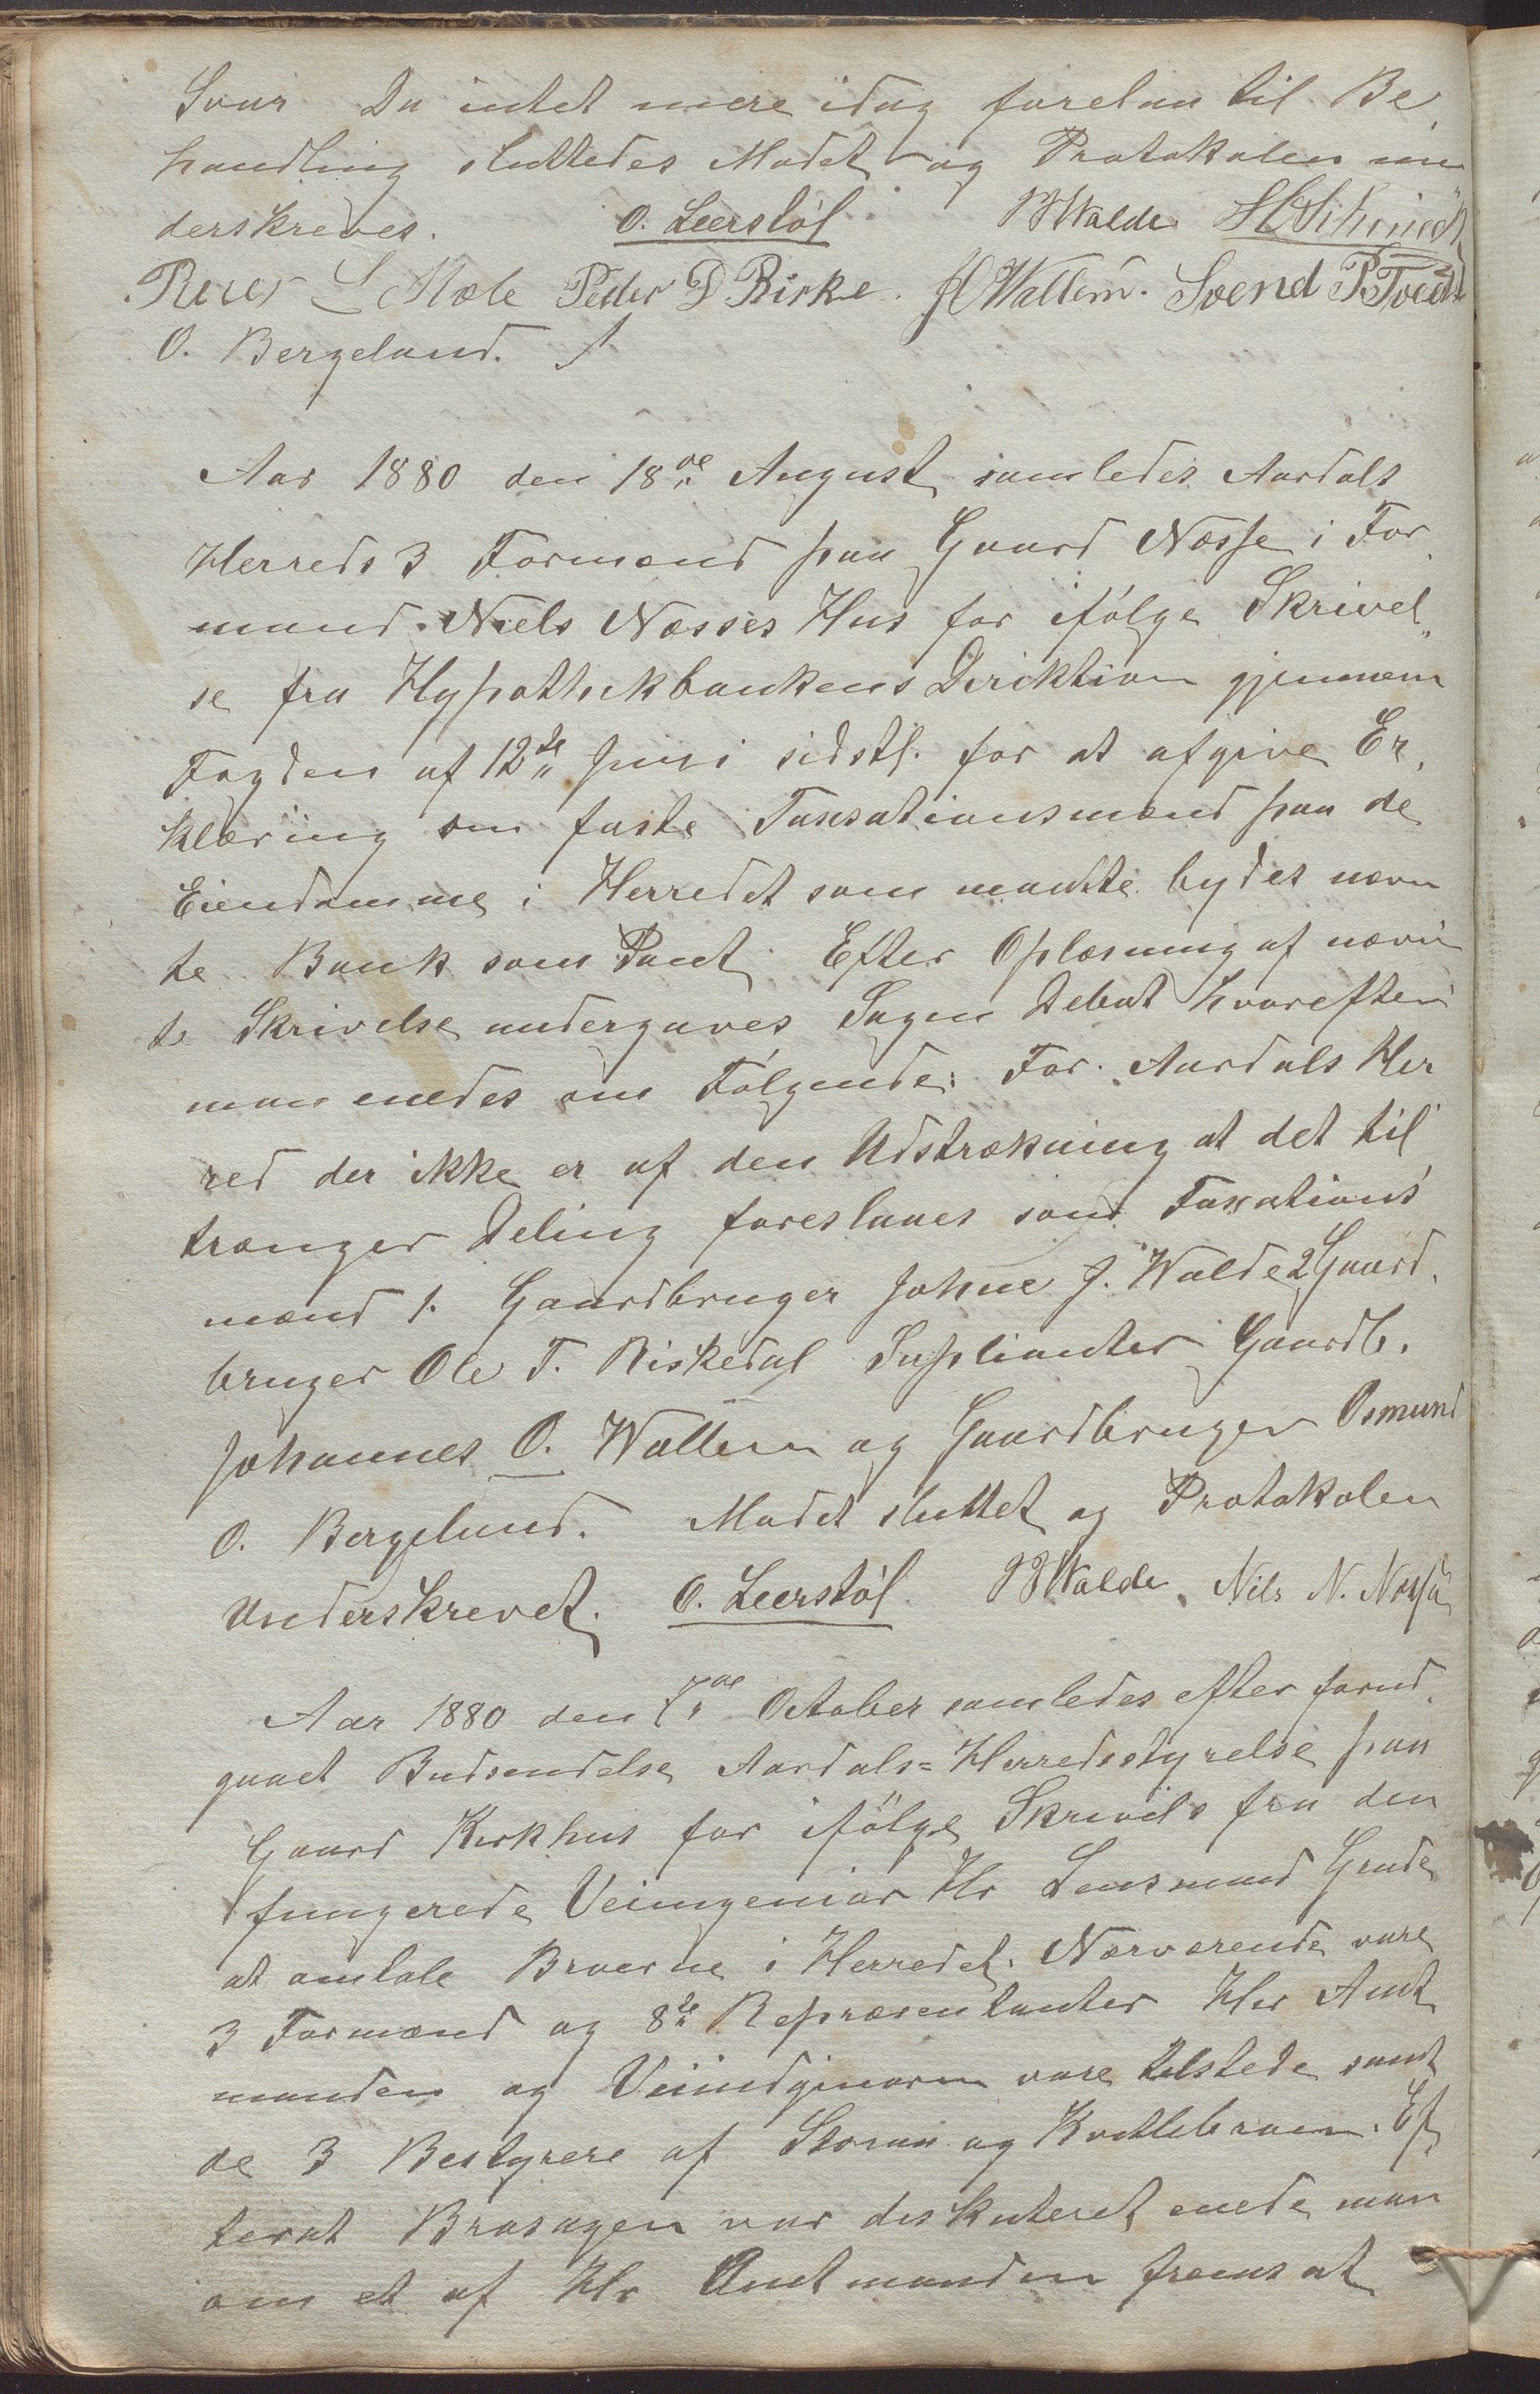 Svar Da intet mere idag forelaa til Be,
handling sluttedes Mødet og Protokolen un
derskreves. O. Leerstøl J J Walde
Reier L Mæle Peder P Birke. J O Wallem. Svend P. Tvedt
O. Bergeland.
Aar 1880 den 18de August samledes Aardals
Herreds 3 Formænd paa Gaard Nessse i For,
mand Niels Nesses Hus for ifølge Skrivel„
se fra Hypothekbankens Direktion gjennem
Fogden af 12te Juni sidstl. for at afgive Er,
klæring om faste Taxsationsmænd paa de
Eiendomme i Herredet som maatte bydes nævn
te Bank som Pant Efter Oplæsning af nævn
te Skrivelse undergaves Sagen Debat hvorefter
man enedes om Følgende: For Aardals Her
red der ikke er af den Udstrækning at det til
trænger Deling foreslaaes som Taxations
mænd 1. Gaardbruger Johne J. Walde 2 Gaard,
bruger Ole T. Riskedal Suplianter Gaardb.
Johannes O. Wallem og Gaardbruger Osmund
O. Bergeland. Mødet sluttet og Protokolen
Underskrevet. O. Leerstøl J J Walde. Nils N. Nessa
Aar 1880 den 7de October samledes efter forud,
gaaet Budsendelse Aardals=Herredsstyrelse paa
Gaard Kirkhus for ifølge Skrivels fra den
fungerede Veiingeniør Hr Lensmand Grude
at omtale Broerne i Herredet. Nærværende vare
3 Formænd og 8te Repræsentanter Her Amt
manden og Veiindginøren vare tilstede samt
de 3 Bestyrere af Storaa og Kvitlebroen. Ef,
terat Brosagen var diskuteret enede man
om et af Hr Amtmanden fremsat